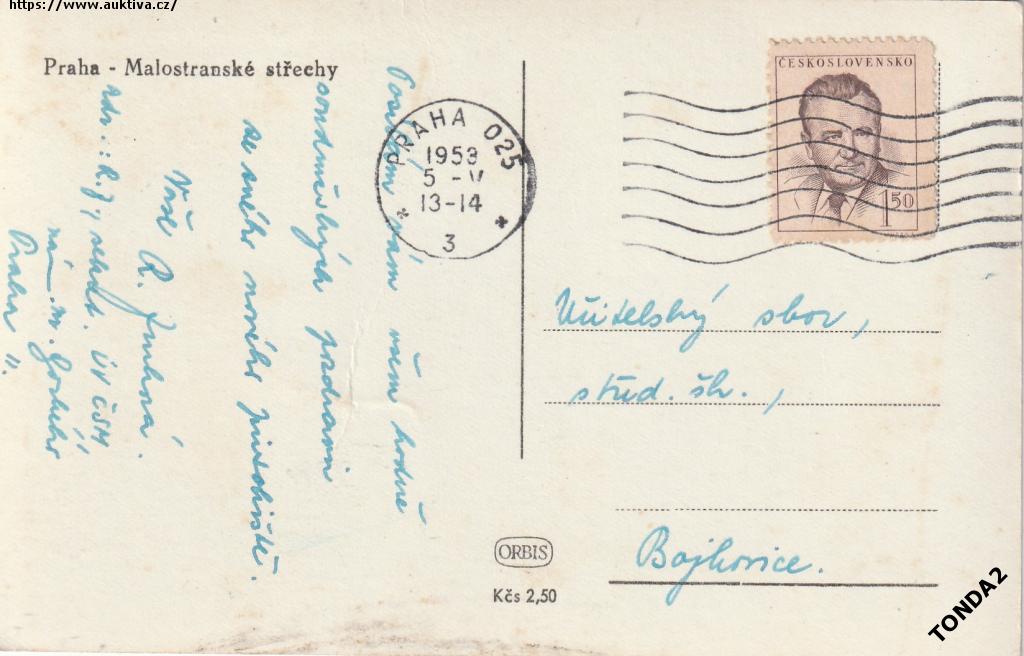 https://www.auktiva.cz/
Praha - Malostranské střechy
Posílám vám všem hodně
soudružských pozdravů
ze svého nového působiště.
Vaše R.
Adr.: R. J., sekret. ÚV ČSM
nám. M. Gorkého
Praha II.
PRAHA 025
1953
5 -V
13-14
3
ČESKOSLOVENSKO
1 50
Učitelský sbor,
střed. šk.,
Bojkovice.
ORBIS
Kčs 2,50
TONDA2